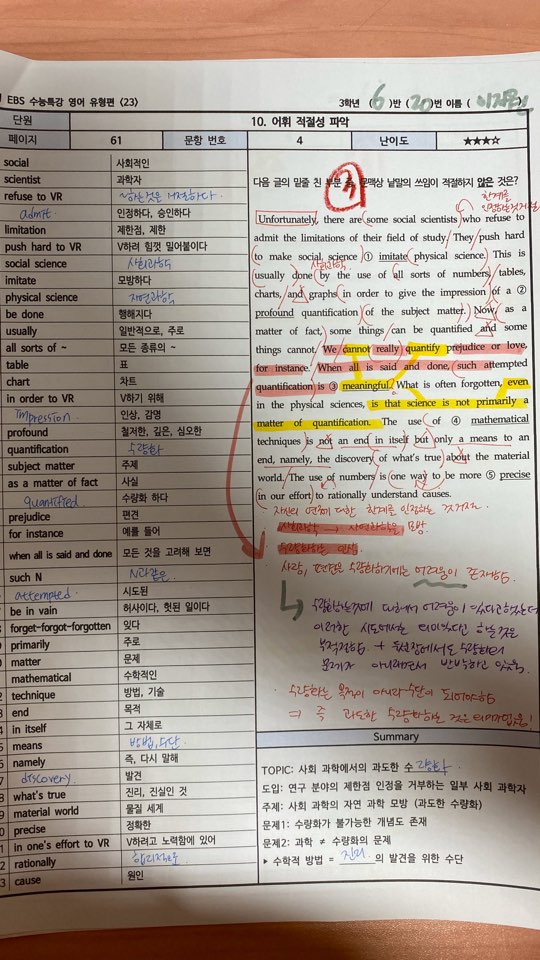 EBS 수능특강 영어 유형편 <23>
3학년 ( 6 )반 ( 20 )번 이름 (
단원
10. 어휘 적절성 파악
페이지
61
문항 번호
4
난이도
★★★☆
social 사회적인
scientist 과학자
refuse to VR ~하는것은 거절하다
admit 인정하다, 승인하다
limitation 제한점, 제한
push hard to VR V하려 힘껏 밀어붙이다
social science 사회과학
imitate 모방하다
physical science 자연과학
be done 행해지다
usually 일반적으로, 주로
all sorts of ~ 모든 종류의 ~
table 표
chart 차트
in order to VR V하기 위해
impression 인상, 감명
profound 철저한, 깊은, 심오한
quantification 수량화
subject matter 주제
as a matter of fact 사실
quantified 수량화 하다
prejudice 편견
for instance 예를 들어
when all is said and done 모든 것을 고려해 보면
such N N과같은
attempted 시도된
be in vain 허사이다, 헛된 일이다
forget-forgot-forgotten 잊다
primarily 주로
matter 문제
mathematical 수학적인
technique 방법, 기술
end 목적
in itself 그 자체로
means 방법, 수단
namely 즉, 다시 말해
discovery 발견
what's true 진리, 진실인 것
material world 물질 세계
precise 정확한
in one's effort to VR V하려고 노력함에 있어
rationally 합리적으로
cause 원인
다음 글의 밑줄 친 부분 중, 문맥상 낱말의 쓰임이 적절하지 않은 것은?
③
한계를
사회과학
Unfortunately, there are some social scientists who refuse to
admit the limitations of their field of study. They push hard
to make social science ① imitate physical science. This is
usually done by the use of all sorts of numbers, tables,
charts, and graphs in order to give the impression of a ②
profound quantification of the subject matter. Now, as a
matter of fact, some things can be quantified and some
things cannot. We cannot really quantify prejudice or love,
for instance. When all is said and done, such attempted
quantification is ③ meaningful. What is often forgotten, even
in the physical sciences, is that science is not primarily a
matter of quantification. The use of ④ mathematical
techniques is not an end in itself but only a means to an
end, namely, the discovery of what's true about the material
world. The use of numbers is one way to be more ⑤ precise
in our effort to rationally understand causes.
자신의 연구에 대한 한계를 인정하는 것 거절
사회과학 → 자연과학을 모방
수량화된 인상
사랑, 편견은 수량화하기에는 어려움이 존재함.
↳ 수량화하는것에 대해서 어려움이 있다고 했는데
이러한 시도에서는 의미있다고 하는것은
부적절함. + 뒷문장에서도 수량화의
문제가 아니래면서 반박하고 있음.
수량화는 목적이 아니라 수단이 되어야함
⇒ 즉 과도한 수량화하는 것은 의미가없음!
Summary
TOPIC: 사회 과학에서의 과도한 수량화
도입: 연구 분야의 제한점 인정을 거부하는 일부 사회 과학자
주제: 사회 과학의 자연 과학 모방 (과도한 수량화)
문제1: 수량화가 불가능한 개념도 존재
문제2: 과학 ≠ 수량화의 문제
▸ 수학적 방법 = 진리의 발견을 위한 수단